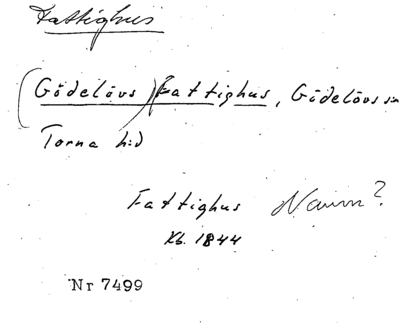 Fattighus
(Gödelövs) Fattighus, Gödelövs sn
Torna hd
Fattighus Namn?
Kb. 1844
Nr 7499